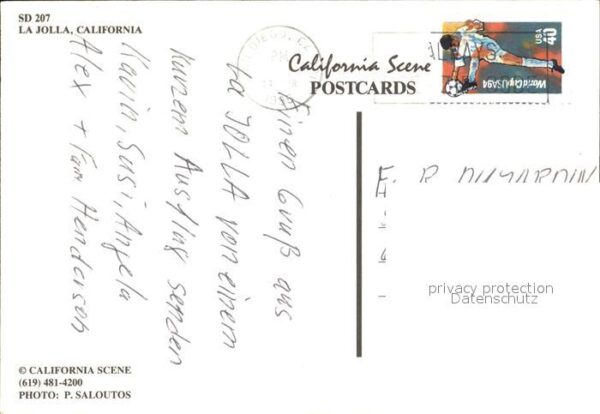 SD 207
LA JOLLA, CALIFORNIA
California Scene
POSTCARDS
USA
40
World Cup USA94
Einen Gruß aus
La JOLLA von einem
Kurzem Ausflug senden
Kavin, Susi, Angela
Alex + Fam Henderson
privacy protection
Datenschutz
© CALIFORNIA SCENE
(619) 481-4200
PHOTO: P. SALOUTOS